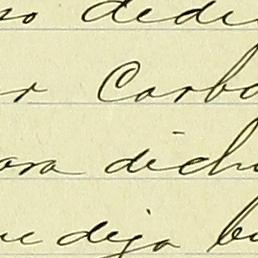 so dedi
r Carbo
ara dicho
ue dija bu